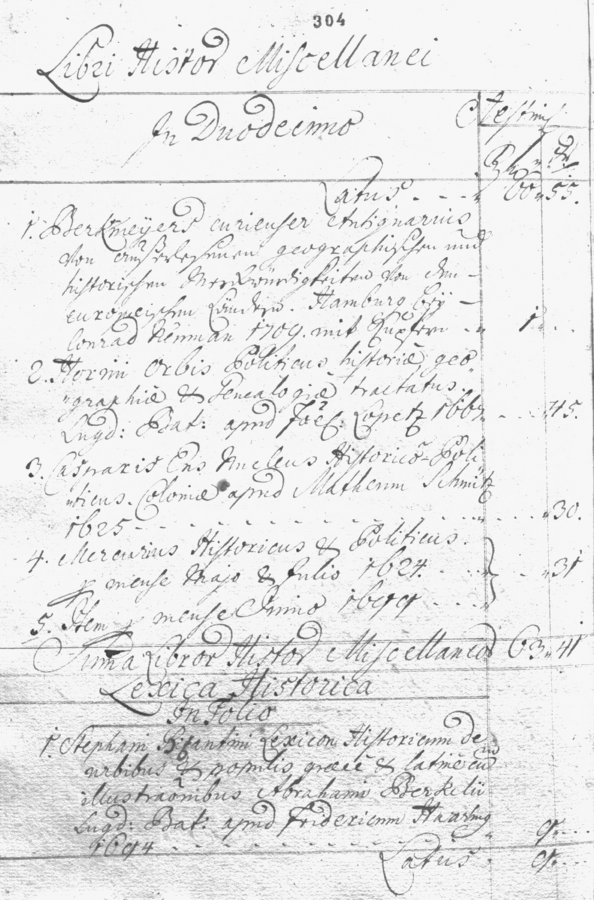 304
Libri Histor̄ Miscellanei
In Duodecimo
Aestim̄
Latus. - - - 60 " 55.
1. Berkmeyers curieuser Antiquarius
von auserlesenen geographischen und
historischen Merkwürdigkeiten von den
europeischen Ländern. Hamburg bey
Conrad Neuman 1709. mit Kupfern - " 1 " . .
2. Hornii Orbis Politicus, historiæ, geo
"graphiæ & Genealogiæ tractatus.
Lugd: Bat: apud Foel: Lopetz 1667 - . . . " 45.
3. Casparis Ens Nucleus Historico-Poli
"ticus. Coloniæ apud Matheum Schmitz
1625 - - - - - - - - - - - - " 30.
4. Mercurius Historicus & Politicus.
p mense Majo & Julio 1624. . . . . . " 31
5. Item p mense Junio 1699 . . . .
Suma Libror̄ Histor̄ Miscellaneor̄ 63 " 41
Lexica Historica
In Folio
1. Stephani Bizantini Lexicon Historicum de
urbibus & populis, græce & latine cum
illustraōnibus Abrahami Berkelii
Lugd: Bat: apud Fridericum Haaring
1694 - - - - - - - - - - - 9. . . .
Latus . 9. . . .